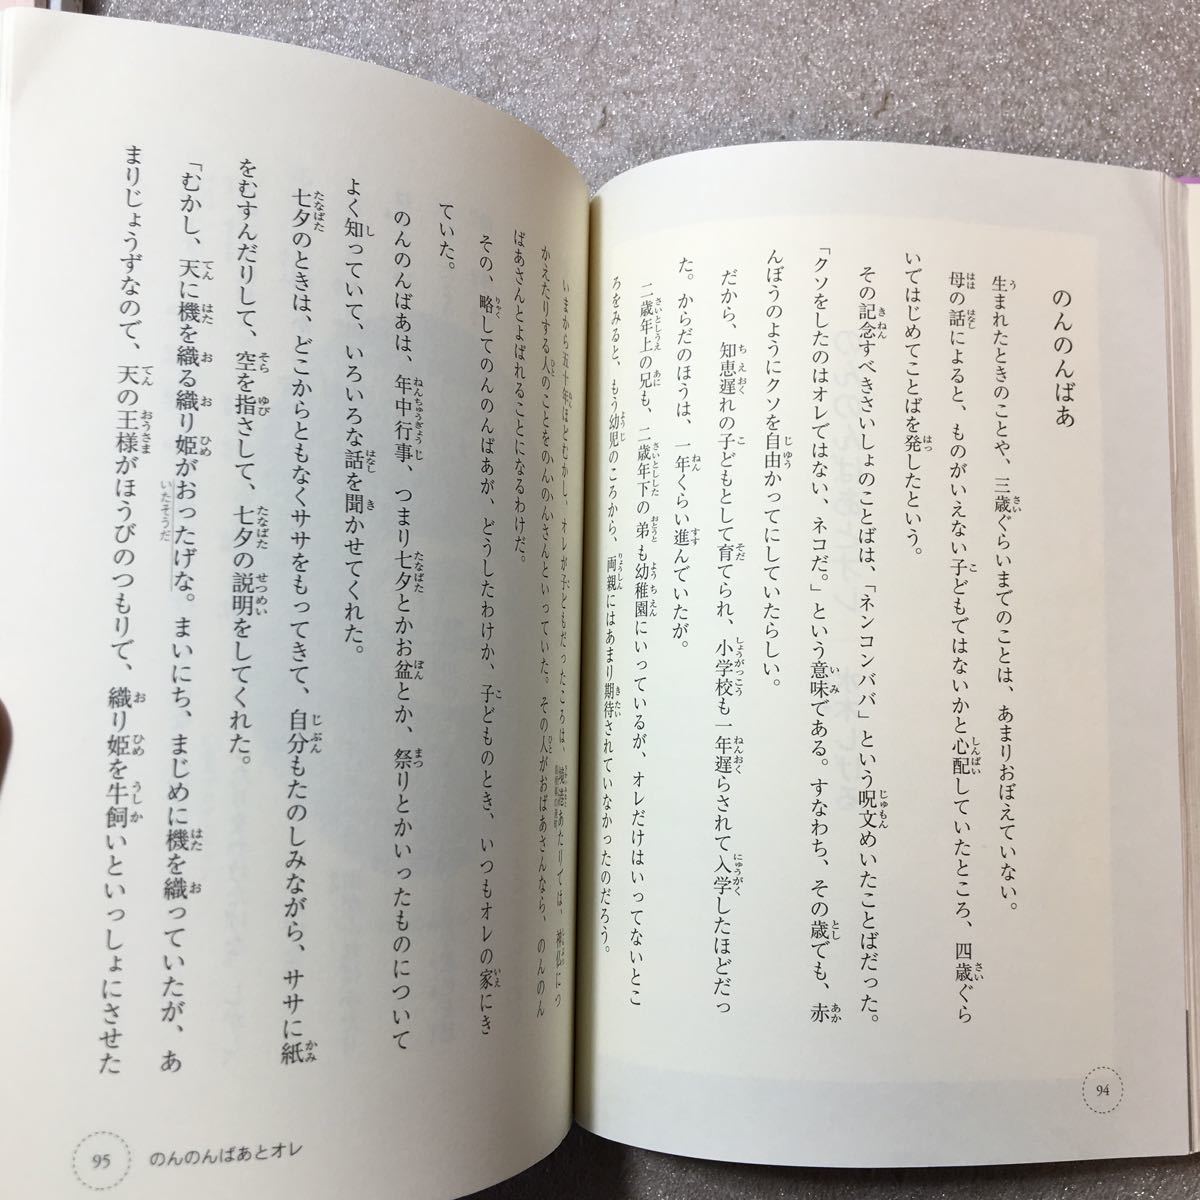 のんのんばあ
生まれたときのことや、三歳ぐらいまでのことは、あまりおぼえていない。
母の話によると、ものがいえない子どもではないかと心配していたところ、四歳ぐら
いではじめてことばを発したという。
その記念すべきさいしょのことばは、「ネンコンババ」という呪文めいたことばだった。
「クソをしたのはオレではない、ネコだ。」という意味である。すなわち、その歳でも、赤
んぼうのようにクソを自由かってにしていたらしい。
だから、知恵遅れの子どもとして育てられ、小学校も一年遅らされて入学したほどだっ
た。からだのほうは、一年くらい進んでいたが。
二歳年上の兄も、二歳年下の弟も幼稚園にいっているが、オレだけはいってないとこ
ろをみると、もう幼児のころから、両親にはあまり期待されていなかったのだろう。
94
いまから五十年ほどむかし、オレが子どもだったころは、境港あたりでは、神仏につ
かえたりする人のことをのんのんさんといっていた。その人がおばあさんなら、のんのん
ばあさんとよばれることになるわけだ。
その、略してのんのんばあが、どうしたわけか、子どものとき、いつもオレの家にき
ていた。
のんのんばあは、年中行事、つまり七夕とかお盆とか、祭りとかいったものについて
よく知っていて、いろいろな話を聞かせてくれた。
七夕のときは、どこからともなくササをもってきて、自分もたのしみながら、ササに紙
をむすんだりして、空を指さして、七夕の説明をしてくれた。
「むかし、天に機を織る織り姫がおったげな。まいにち、まじめに機を織っていたが、あ
いたそうだ
まりじょうずなので、天の王様がほうびのつもりで、織り姫を牛飼いといっしょにさせた
95
のんのんばあとオレ